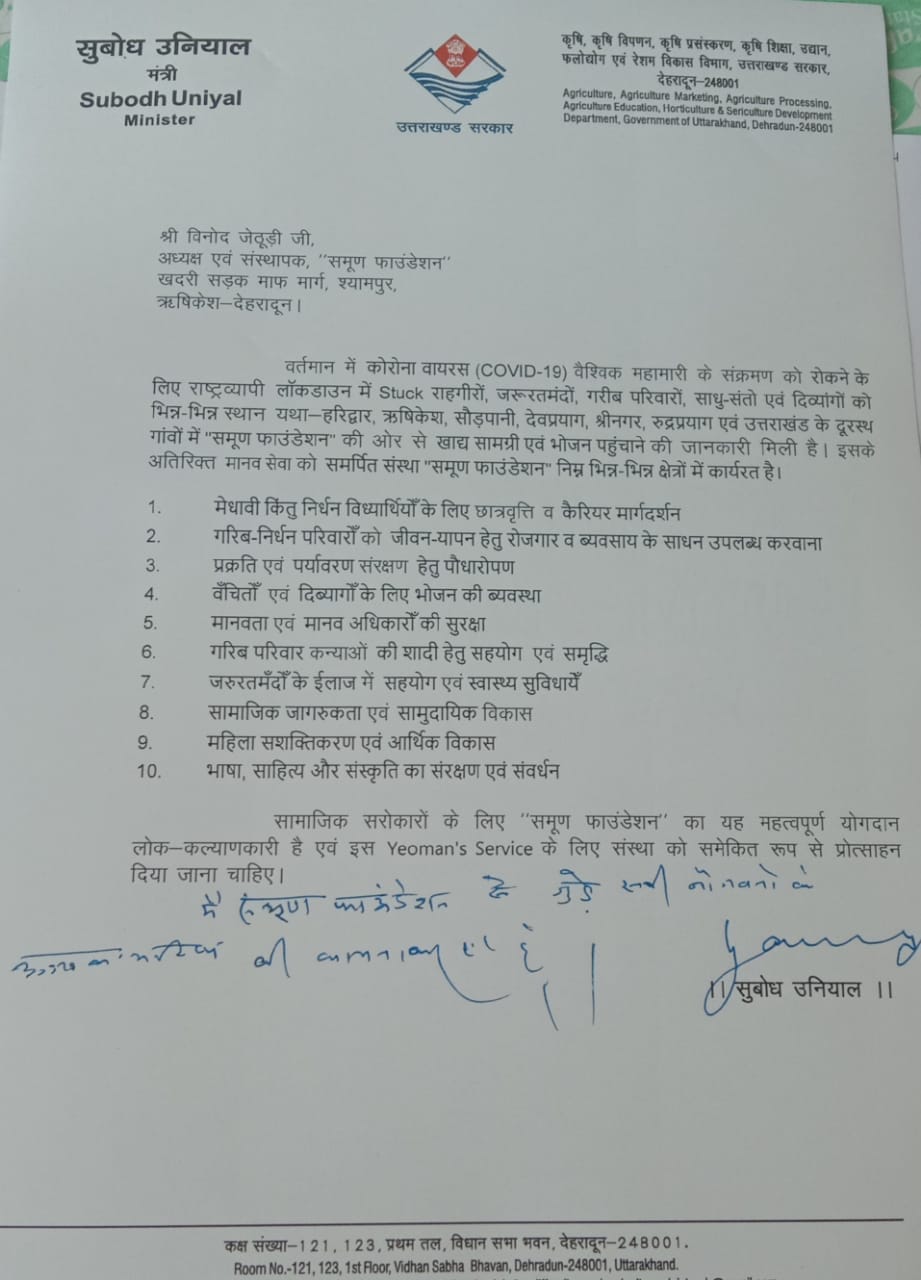 सुबोध उनियाल
मंत्री
Subodh Uniyal
Minister
उत्तराखण्ड सरकार
कृषि, कृषि विपणन, कृषि प्रसंस्करण, कृषि शिक्षा, उद्यान,
फलोद्योग एवं रेशम विकास विभाग, उत्तराखण्ड सरकार,
देहरादून–248001
Agriculture, Agriculture Marketing, Agriculture Processing,
Agriculture Education, Horticulture & Sericulture Development
Department, Government of Uttarakhand, Dehradun-248001
श्री विनोद जेठूड़ी जी,
अध्यक्ष एवं संस्थापक, "समूण फाउंडेशन"
खदरी सड़क माफ मार्ग, श्यामपुर,
ऋषिकेश–देहरादून।
वर्तमान में कोरोना वायरस (COVID-19) वैश्विक महामारी के संक्रमण को रोकने के
लिए राष्ट्रव्यापी लॉकडाउन में Stuck राहगीरों, जरूरतमंदों, गरीब परिवारों, साधु-संतो एवं दिव्यांगों को
भिन्न-भिन्न स्थान यथा–हरिद्वार, ऋषिकेश, सौड़पानी, देवप्रयाग, श्रीनगर, रुद्रप्रयाग एवं उत्तराखंड के दूरस्थ
गांवों में "समूण फाउंडेशन" की ओर से खाद्य सामग्री एवं भोजन पहुंचाने की जानकारी मिली है। इसके
अतिरिक्त मानव सेवा को समर्पित संस्था "समूण फाउंडेशन" निम्न भिन्न-भिन्न क्षेत्रों में कार्यरत है।
1. मेधावी किंतु निर्धन विध्यार्थियोँ के लिए छात्रवृत्ति व कैरियर मार्गदर्शन
2. गरिब-निर्धन परिवारोँ को जीवन-यापन हेतु रोजगार व ब्यवसाय के साधन उपलब्ध करवाना
3. प्रक्रति एवं पर्यावरण संरक्षण हेतु पौधारोपण
4. वँचितोँ एवं दिब्यागोँ के लिए भोजन की ब्यवस्था
5. मानवता एवं मानव अधिकारोँ की सुरक्षा
6. गरिब परिवार कन्याओं की शादी हेतु सहयोग एवं समृद्धि
7. जरुरतमँदोँ के ईलाज में सहयोग एवं स्वास्थ्य सुविधायेँ
8. सामाजिक जागरुकता एवं सामुदायिक विकास
9. महिला सशक्तिकरण एवं आर्थिक विकास
10. भाषा, साहित्य और संस्कृति का संरक्षण एवं संवर्धन
सामाजिक सरोकारों के लिए "समूण फाउंडेशन" का यह महत्वपूर्ण योगदान
लोक–कल्याणकारी है एवं इस Yeoman's Service के लिए संस्था को समेकित रूप से प्रोत्साहन
दिया जाना चाहिए।
मैं समूण फाउंडेशन से जुड़े सभी नौजवानों के
की
।। सुबोध उनियाल ।।
कक्ष संख्या–121, 123, प्रथम तल, विधान सभा भवन, देहरादून–248001.
Room No.-121, 123, 1st Floor, Vidhan Sabha Bhavan, Dehradun-248001, Uttarakhand.